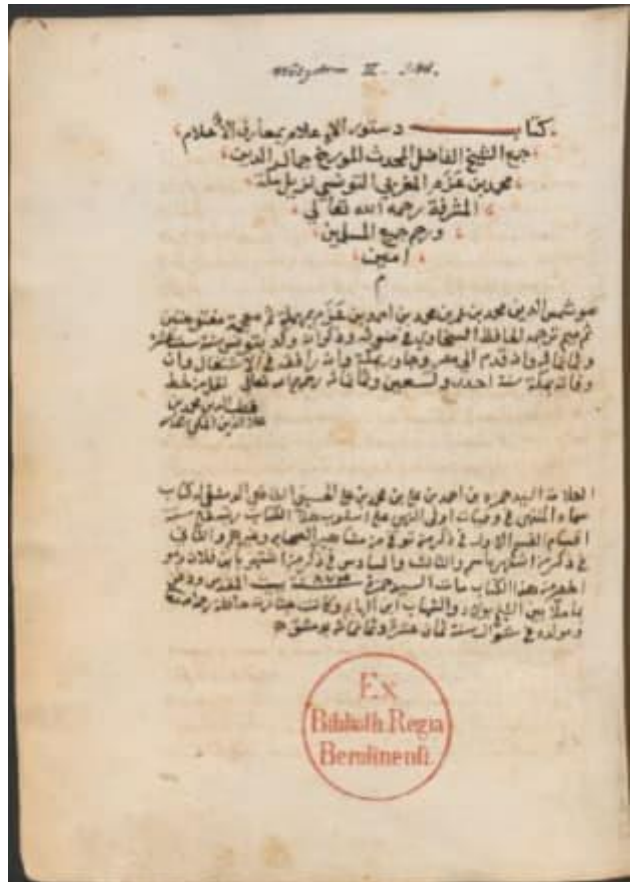 Wetzstein II. 
كتاب دستور الإعلام بمعارف الأعلام
جمع الشيخ الفاضل المحدث المورخ جمال الدين
محمد بن عَزَم المغربي التونسي نزيل مكة
المشرفة رحمه الله تعالى
ورحم جميع المسلمين
امين
م
هو شمس الدين محمد بن عمر بن محمد بن احمد بن عَزَم بمهملة ثم معجمة مفتوحتين
ثم ميم ترجمه الحافظ السخاوي في ضوئه وذكر انه ولد بتونس سنة ست عشرة
وثمانمائة وانه قدم الى مصر وجاور بمكة وانه رافقه في الاشتغال وان
وفاته بمكة سنة احدى وتسعين وثمانمائة رحمه الله تعالى نقل من خط
قطب الدين محمد بن
علا الدين المكي
العلامة السيد حمزة بن احمد بن علي بن محمد بن علي الحسيني الشافعي الدمشقي له كتاب
في وفيات اولى النهى على اسلوب هذا الكتاب
اقسام القسم الاول في ذكر من مشاهير الصحابة وغيرهم والثاني
في ذكر من اشتهر باسم والثالث والسادس في ذكر من اشتهر بابن فلان وهو
هذا الكتاب مات السيد حمزة سنة ٨٧٤ ببيت المقدس ودفن
بين والشهاب ابن الهايم وكانت جنازته حافلة رحمه الله
ومولده في شوال سنة ثمان عشرة وثمانمائة بدمشق
Ex
Biblioth. Regia
Berolinensi.